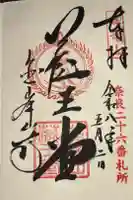 奈良二十六番札所
奉拝
令和八年
五月二日
蔵王堂
金峯山寺